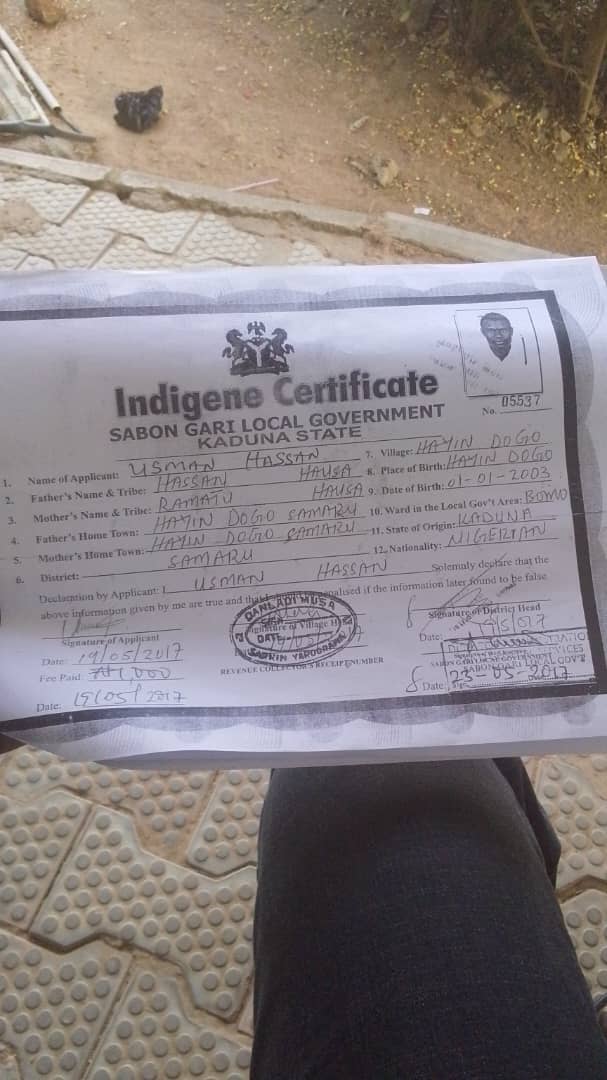 Indigene Certificate
SABON GARI LOCAL GOVERNMENT
KADUNA STATE
No. 05537
1. Name of Applicant: USMAN HASSAN
2. Father's Name & Tribe: HASSAN HAUSA
3. Mother's Name & Tribe: RAMATU HAUSA
4. Father's Home Town: HAYIN DOGO SAMARU
5. Mother's Home Town: HAYIN DOGO SAMARU
6. District: SAMARU
7. Village: HAYIN DOGO
8. Place of Birth: HAYIN DOGO
9. Date of Birth: 01-01-2003
10. Ward in the Local Gov't Area: BOMO
11. State of Origin: KADUNA
12. Nationality: NIGERIAN
Declaration by Applicant: I USMAN HASSAN Solemnly declare that the
above information given by me are true and that if the information later found to be false
Signature of Applicant
Date: 19/05/2017
Fee Paid: ₦1,000
Date: 19/05/2017
DANLADI MUSA
DATE
SARKIN
Signature of Village
REVENUE COLLECTOR'S RECEIPT NUMBER
Signature of District Head
Date:
SABON GARI LOCAL GOVT
Date: 23-05-2017